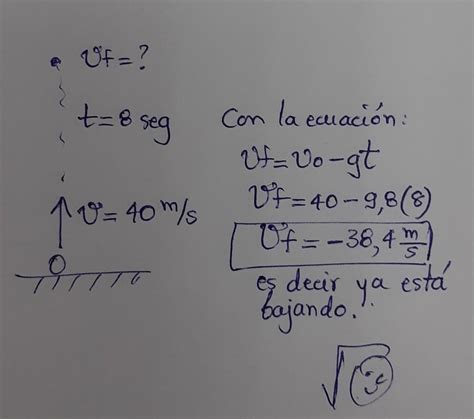 Vf = ?
t = 8 seg
V = 40 m/s
Con la ecuación:
Vf = Vo - gt
Vf = 40 - 9,8(8)
Vf = -38,4 m/s
es decir ya está
bajando.